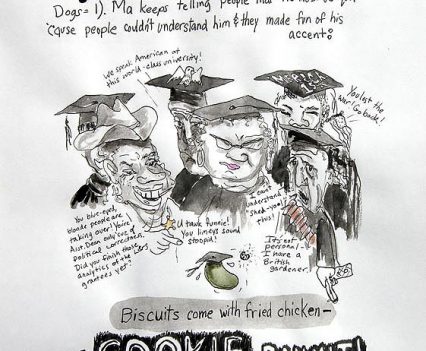 Dogs = 1). Ma keeps telling people that
'cause people couldn't understand him & they made fun of his
accent:
We speak American at
this world-class university!
You lost the
war! Go back!
You blue-eyed,
blonde people are
taking over! You're
Asst. Dean only 'cuz of
political correctness.
Did you finish those
analytics of the
grantees yet?
U tawk funnie!
You limeys sound
stoopid!
I can't
understand
this!
It's not
personal—
I have a
British
gardener.
Biscuits come with fried chicken—
COOKIE